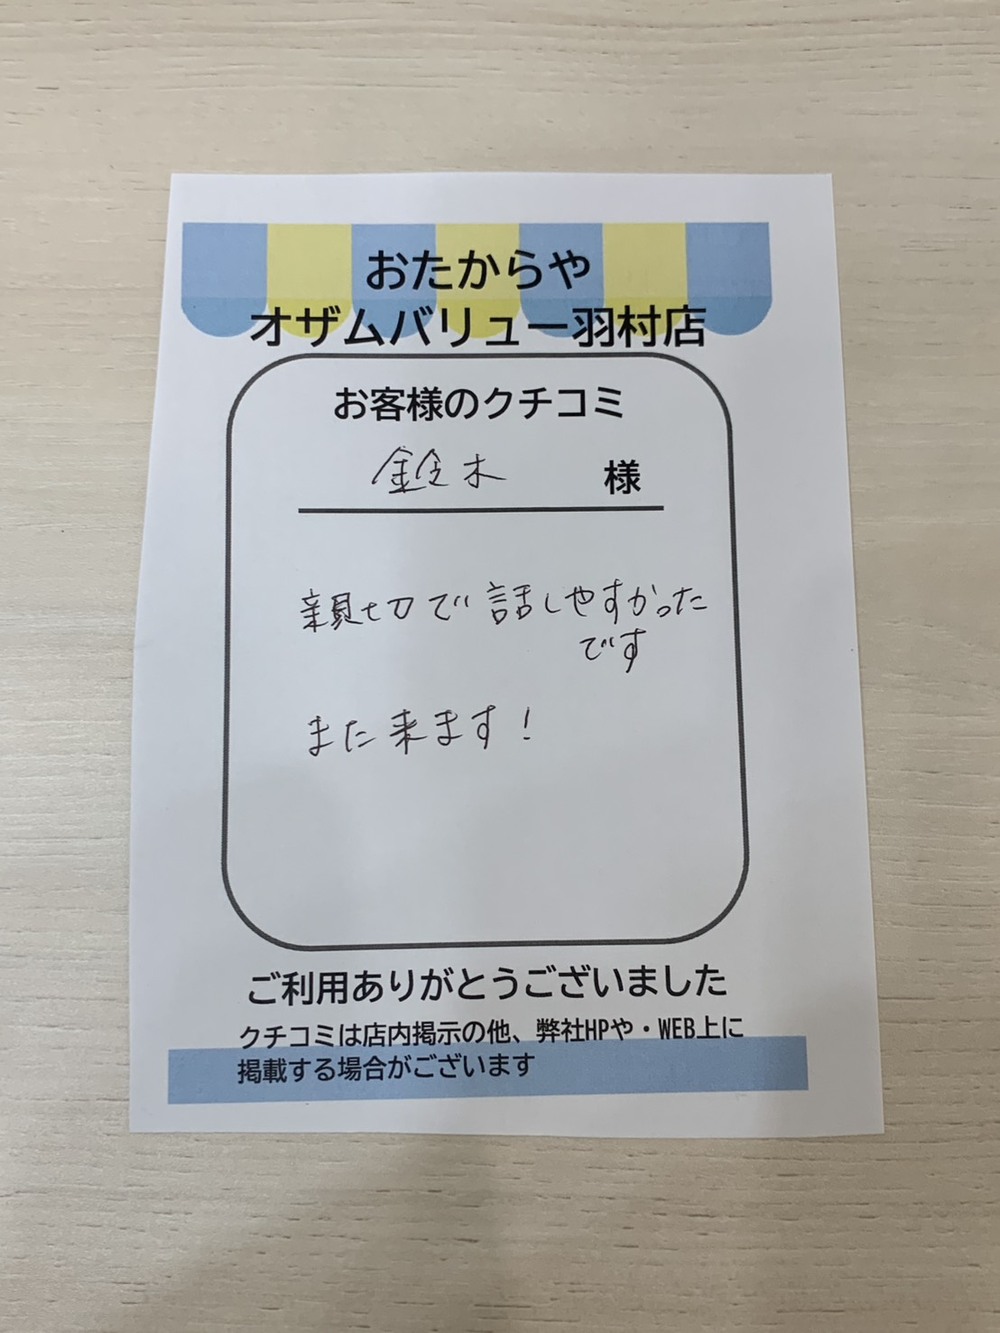 おたからや
オザムバリュー羽村店
お客様のクチコミ
鈴木 様
親切で話しやすかった
です
また来ます!
ご利用ありがとうございました
クチコミは店内掲示の他、弊社HPや・WEB上に
掲載する場合がございます